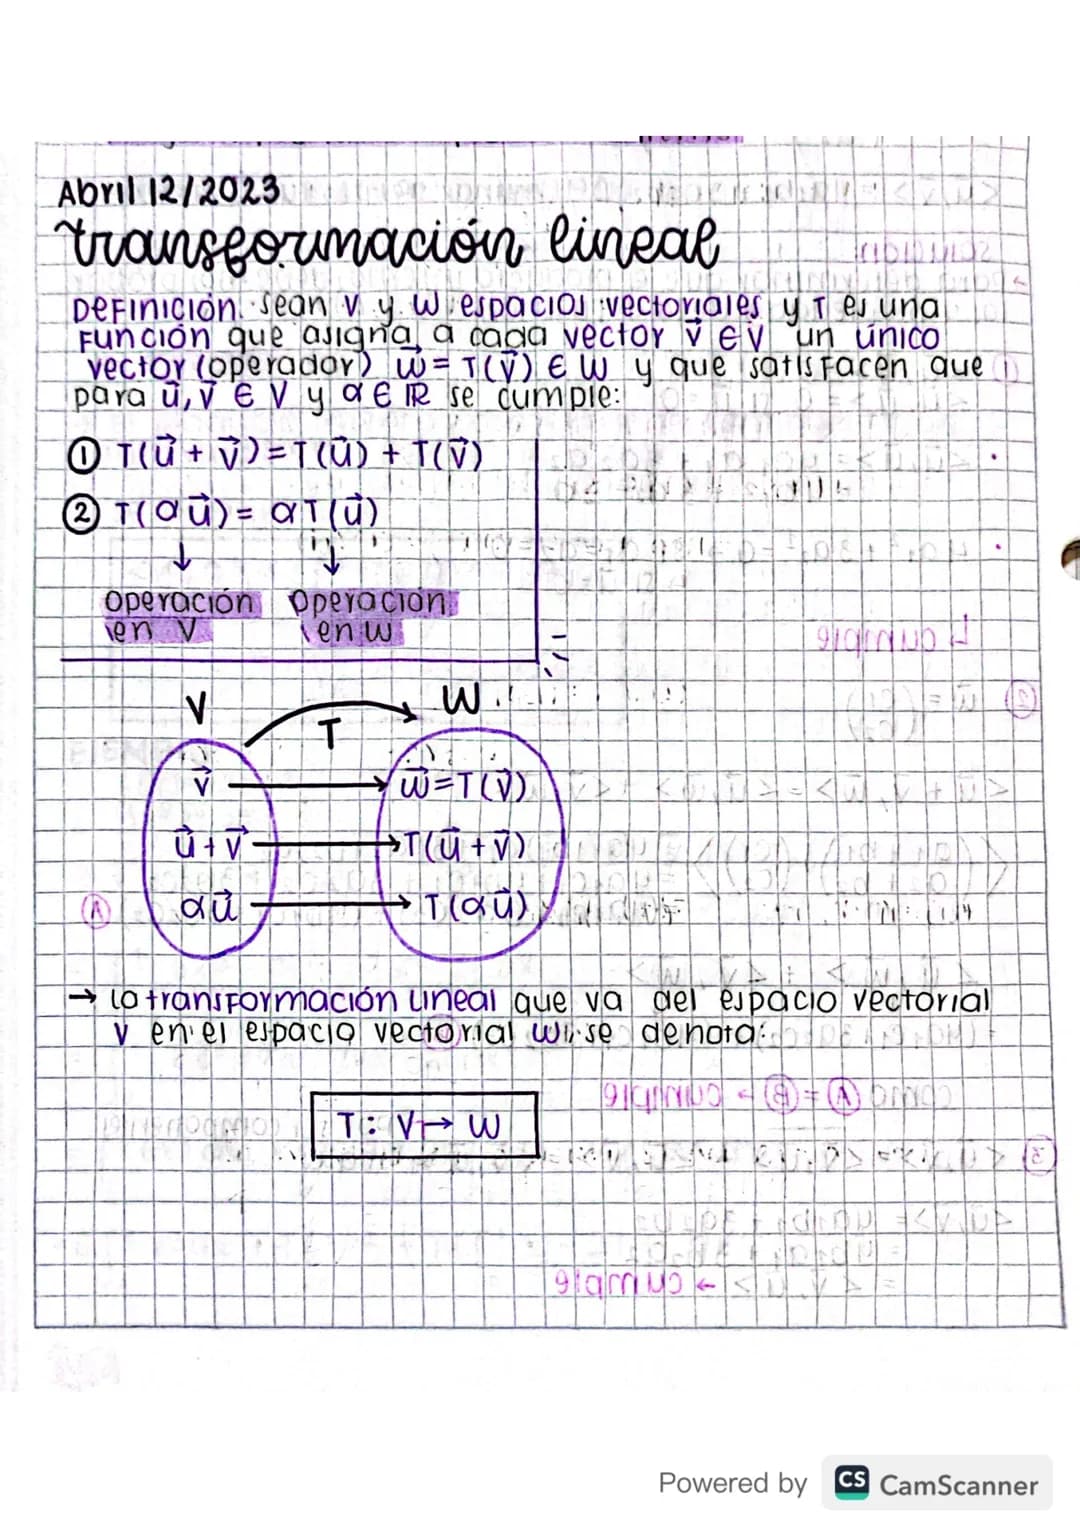 Abril 12/2023
transformación lineal
Definición. Sean V y W espacios vectoriales y T es una
función que asigna a cada vector v⃗ ∈ V un único
vector (operador) w⃗ = T(v⃗) ∈ W y que satisfacen que
para u⃗, v⃗ ∈ V y α ∈ ℝ se cumple:
① T(u⃗ + v⃗) = T(u⃗) + T(v⃗)
② T(αu⃗) = αT(u⃗)
↓ ↓
operación operación
en V en W
V T W
v⃗ → w⃗ = T(v⃗)
u⃗ + v⃗ → T(u⃗ + v⃗)
αu⃗ → T(αu⃗)
→ La transformación lineal que va del espacio vectorial
V en el espacio vectorial W se denota:
T: V → W
Powered by CS CamScanner